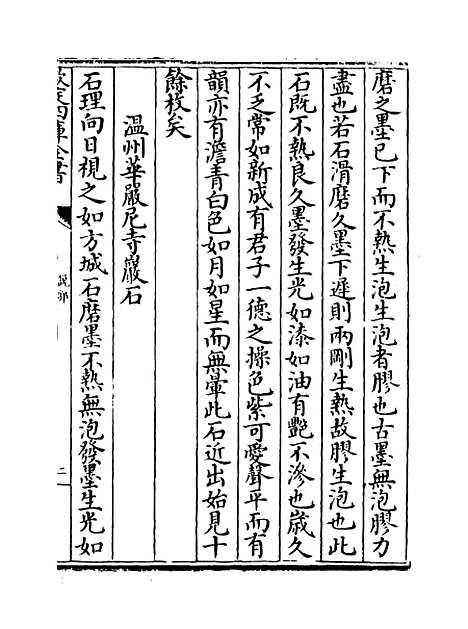 磨之墨已下而不熱生泡生泡者膠也古墨無泡膠力
盡也若石滑磨久墨下遲則兩剛生熱故膠生泡也此
石既不熱良久墨發生光如漆如油有艷不滲也歲久
不乏常如新成有君子一德之操色紫可愛聲平而有
韻亦有澹青白色如月如星而無暈此石近出始見十
餘枚矣
溫州華嚴尼寺巖石
石理向日視之如方城石磨墨不熱無泡發墨生光如
四庫全書
說郛
二